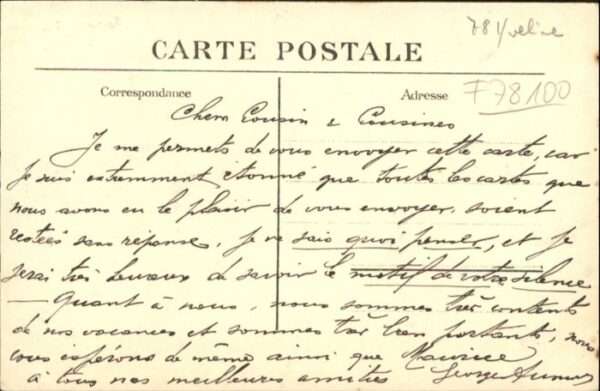 781/veline
CARTE POSTALE
Correspondance
Adresse
F78100
Chers Cousin & Cousines
Je me permets de vous envoyer cette carte, car
je suis extremement étonné que toutes les cartes que
nous avons eu le plaisir de vous envoyer, soient
restées sans réponse, je ne sais quoi penser, et je
serai très heureux de savoir le motif de votre silence
— Quant à nous, nous sommes très contents
de nos vacances et sommes très bien portants, nous
vous espérons de même ainsi que Maurice
à tous nos meilleures amitiés Georges